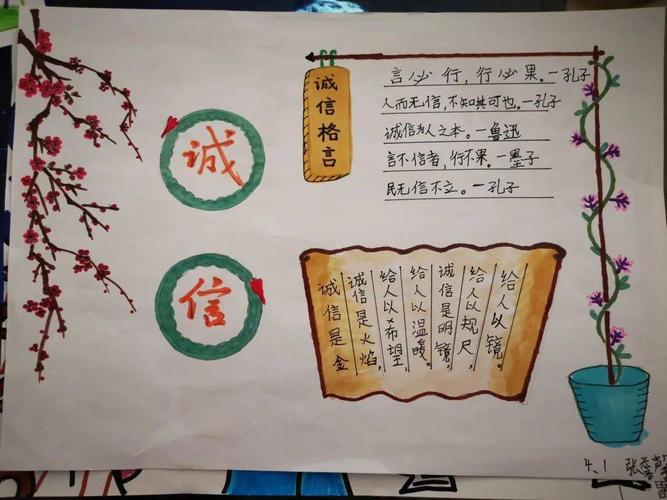 诚
信
诚信格言
言必行，行必果。—孔子
人而无信，不知其可也。—孔子
诚信为人之本。—鲁迅
言不信者，行不果。—墨子
民无信不立。—孔子
诚信是金
诚信是火焰，
给人以希望，
给人以温暖。
诚信是明镜，
给人以规尺，
给人以镜。
4、1 张